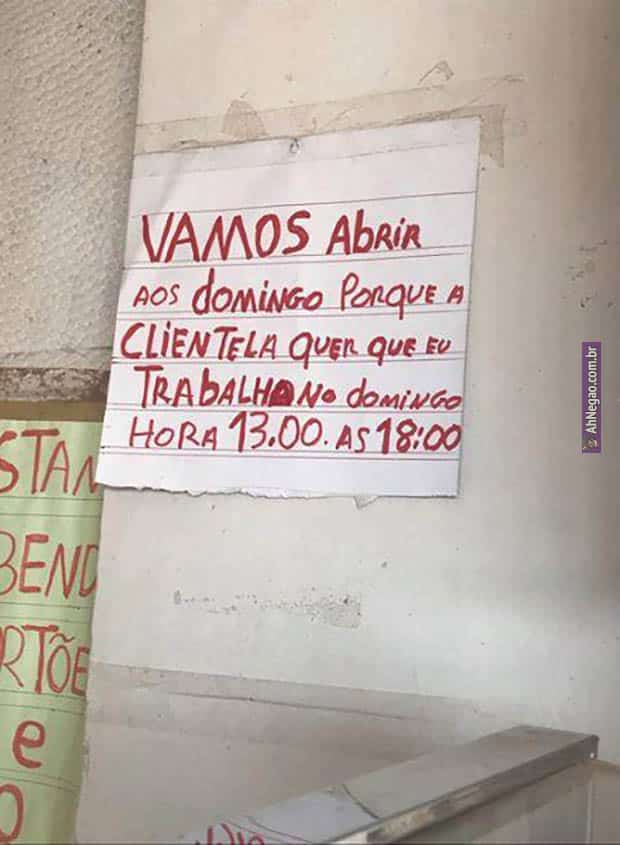 VAMOS AbrIr
AOS domINGO PorQUE A
CLIENTELA QUER QUE EU
TRABALHA NO domINGO
HORA 13.00. AS 18:00
STAN
BEND
RTÕE
e
O
AhNegao.com.br